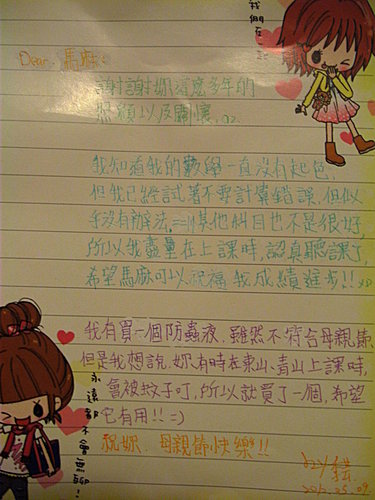 我們在一起
Dear. 馬麻:
謝謝妳這麼多年的
照顧以及關懷.
我知道我的數學一直沒有起色,
但我已經試著不要計算錯誤,但似
乎沒有辦法, 其他科目也不是很好,
所以我盡量在上課時,認真聽課了,
希望馬麻可以祝福我成績進步!! xD
我有買一個防蟲液. 雖然不符合母親節.
但是我想說. 妳有時在東山、青山上課時,
會被蚊子叮, 所以就買了一個, 希望
它有用!! =)
永遠都不會無聊!
祝妳. 母親節快樂!!